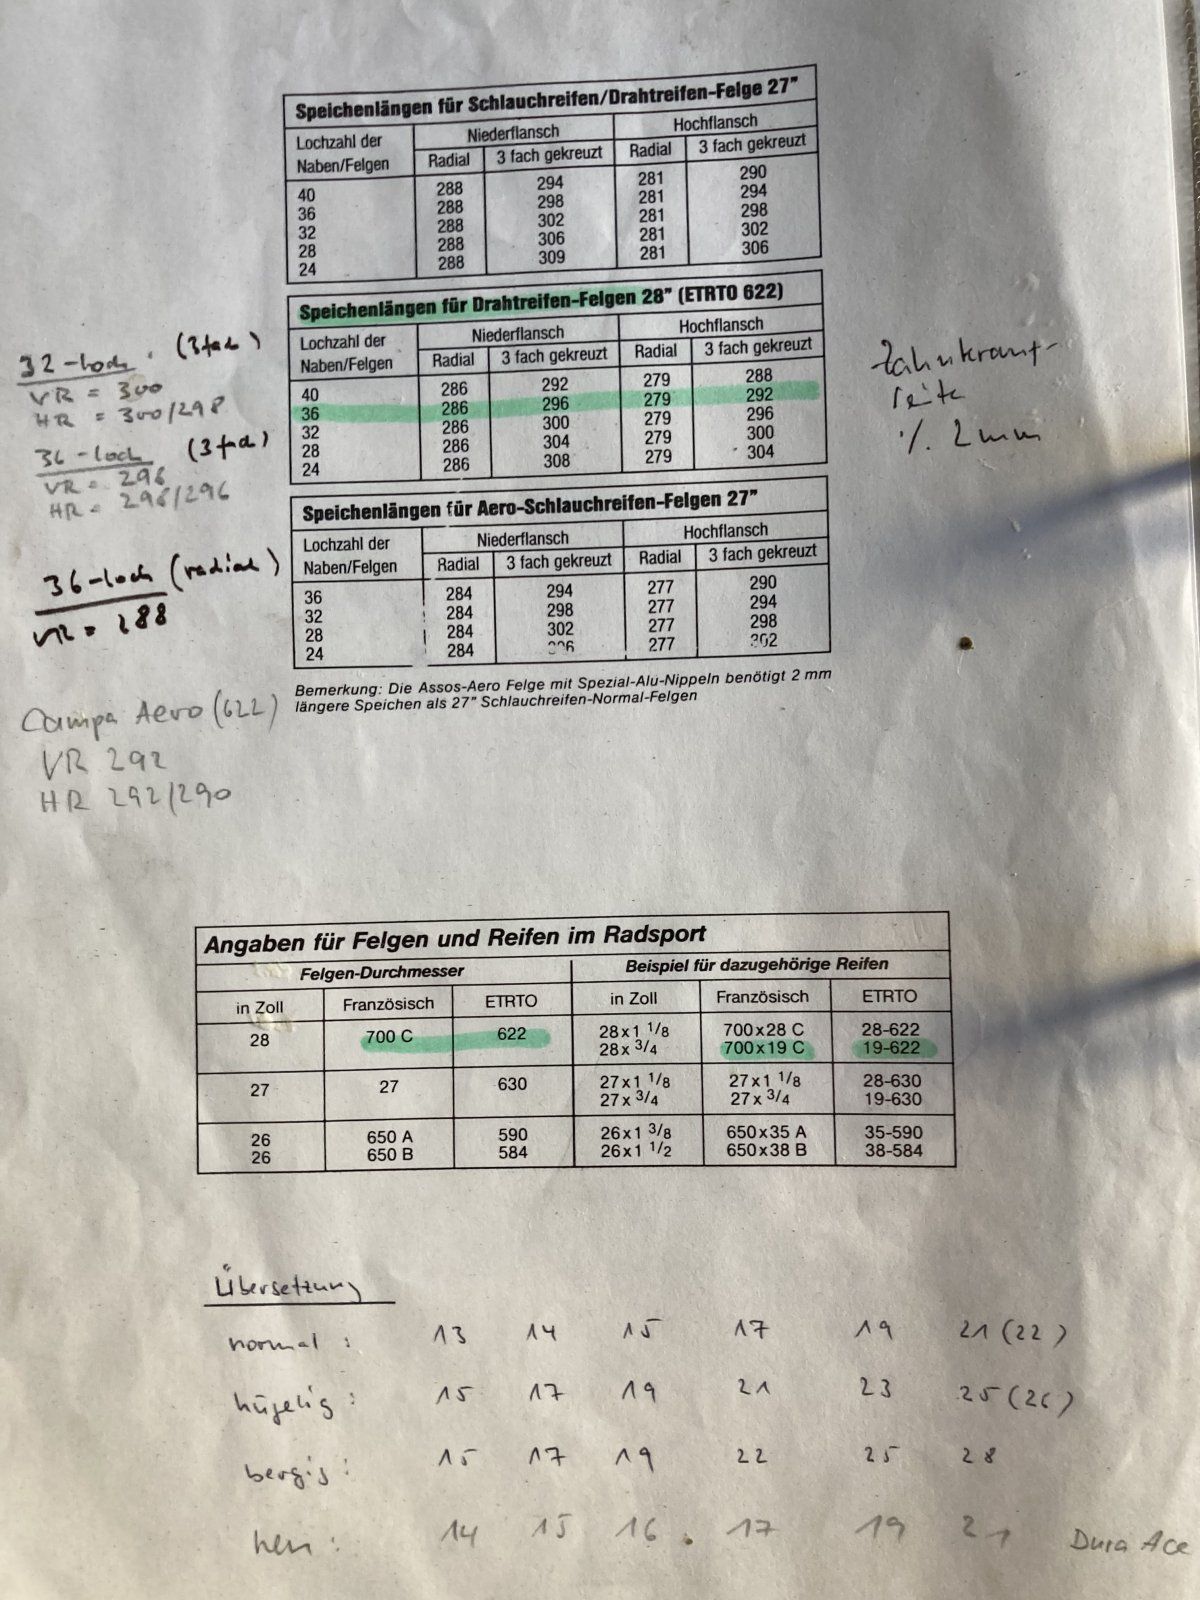 Speichenlängen für Schlauchreifen/Drahtreifen-Felge 27"
Lochzahl der Naben/Felgen Niederflansch Hochflansch
Radial 3 fach gekreuzt Radial 3 fach gekreuzt
40 288 294 281 290
36 288 298 281 294
32 288 302 281 298
28 288 306 281 302
24 288 309 281 306
Speichenlängen für Drahtreifen-Felgen 28" (ETRTO 622)
Lochzahl der Naben/Felgen Niederflansch Hochflansch
Radial 3 fach gekreuzt Radial 3 fach gekreuzt
40 286 292 279 288
36 286 296 279 292
32 286 300 279 296
28 286 304 279 300
24 286 308 279 304
Speichenlängen für Aero-Schlauchreifen-Felgen 27"
Lochzahl der Naben/Felgen Niederflansch Hochflansch
Radial 3 fach gekreuzt Radial 3 fach gekreuzt
36 284 294 277 290
32 284 298 277 294
28 284 302 277 298
24 284 306 277 302
Bemerkung: Die Assos-Aero Felge mit Spezial-Alu-Nippeln benötigt 2 mm
längere Speichen als 27" Schlauchreifen-Normal-Felgen
32-loch (3fach)
VR = 300
HR = 300/298
36-loch (3fach)
VR = 296
HR = 296/296
36-loch (radial)
VR = 288
Campa Aero (622)
VR 292
HR 292/290
Zahnkranz-
seite
./. 2mm
Angaben für Felgen und Reifen im Radsport
Felgen-Durchmesser Beispiel für dazugehörige Reifen
in Zoll Französisch ETRTO in Zoll Französisch ETRTO
28 700 C 622 28x1 1/8 700x28 C 28-622
28x 3/4 700x19 C 19-622
27 27 630 27x1 1/8 27x1 1/8 28-630
27x 3/4 27x 3/4 19-630
26 650 A 590 26x1 3/8 650x35 A 35-590
26 650 B 584 26x1 1/2 650x38 B 38-584
Übersetzung
normal: 13 14 15 17 19 21 (22)
hügelig: 15 17 19 21 23 25 (26)
bergig: 15 17 19 22 25 28
neu: 14 15 16 17 19 21 Dura Ace